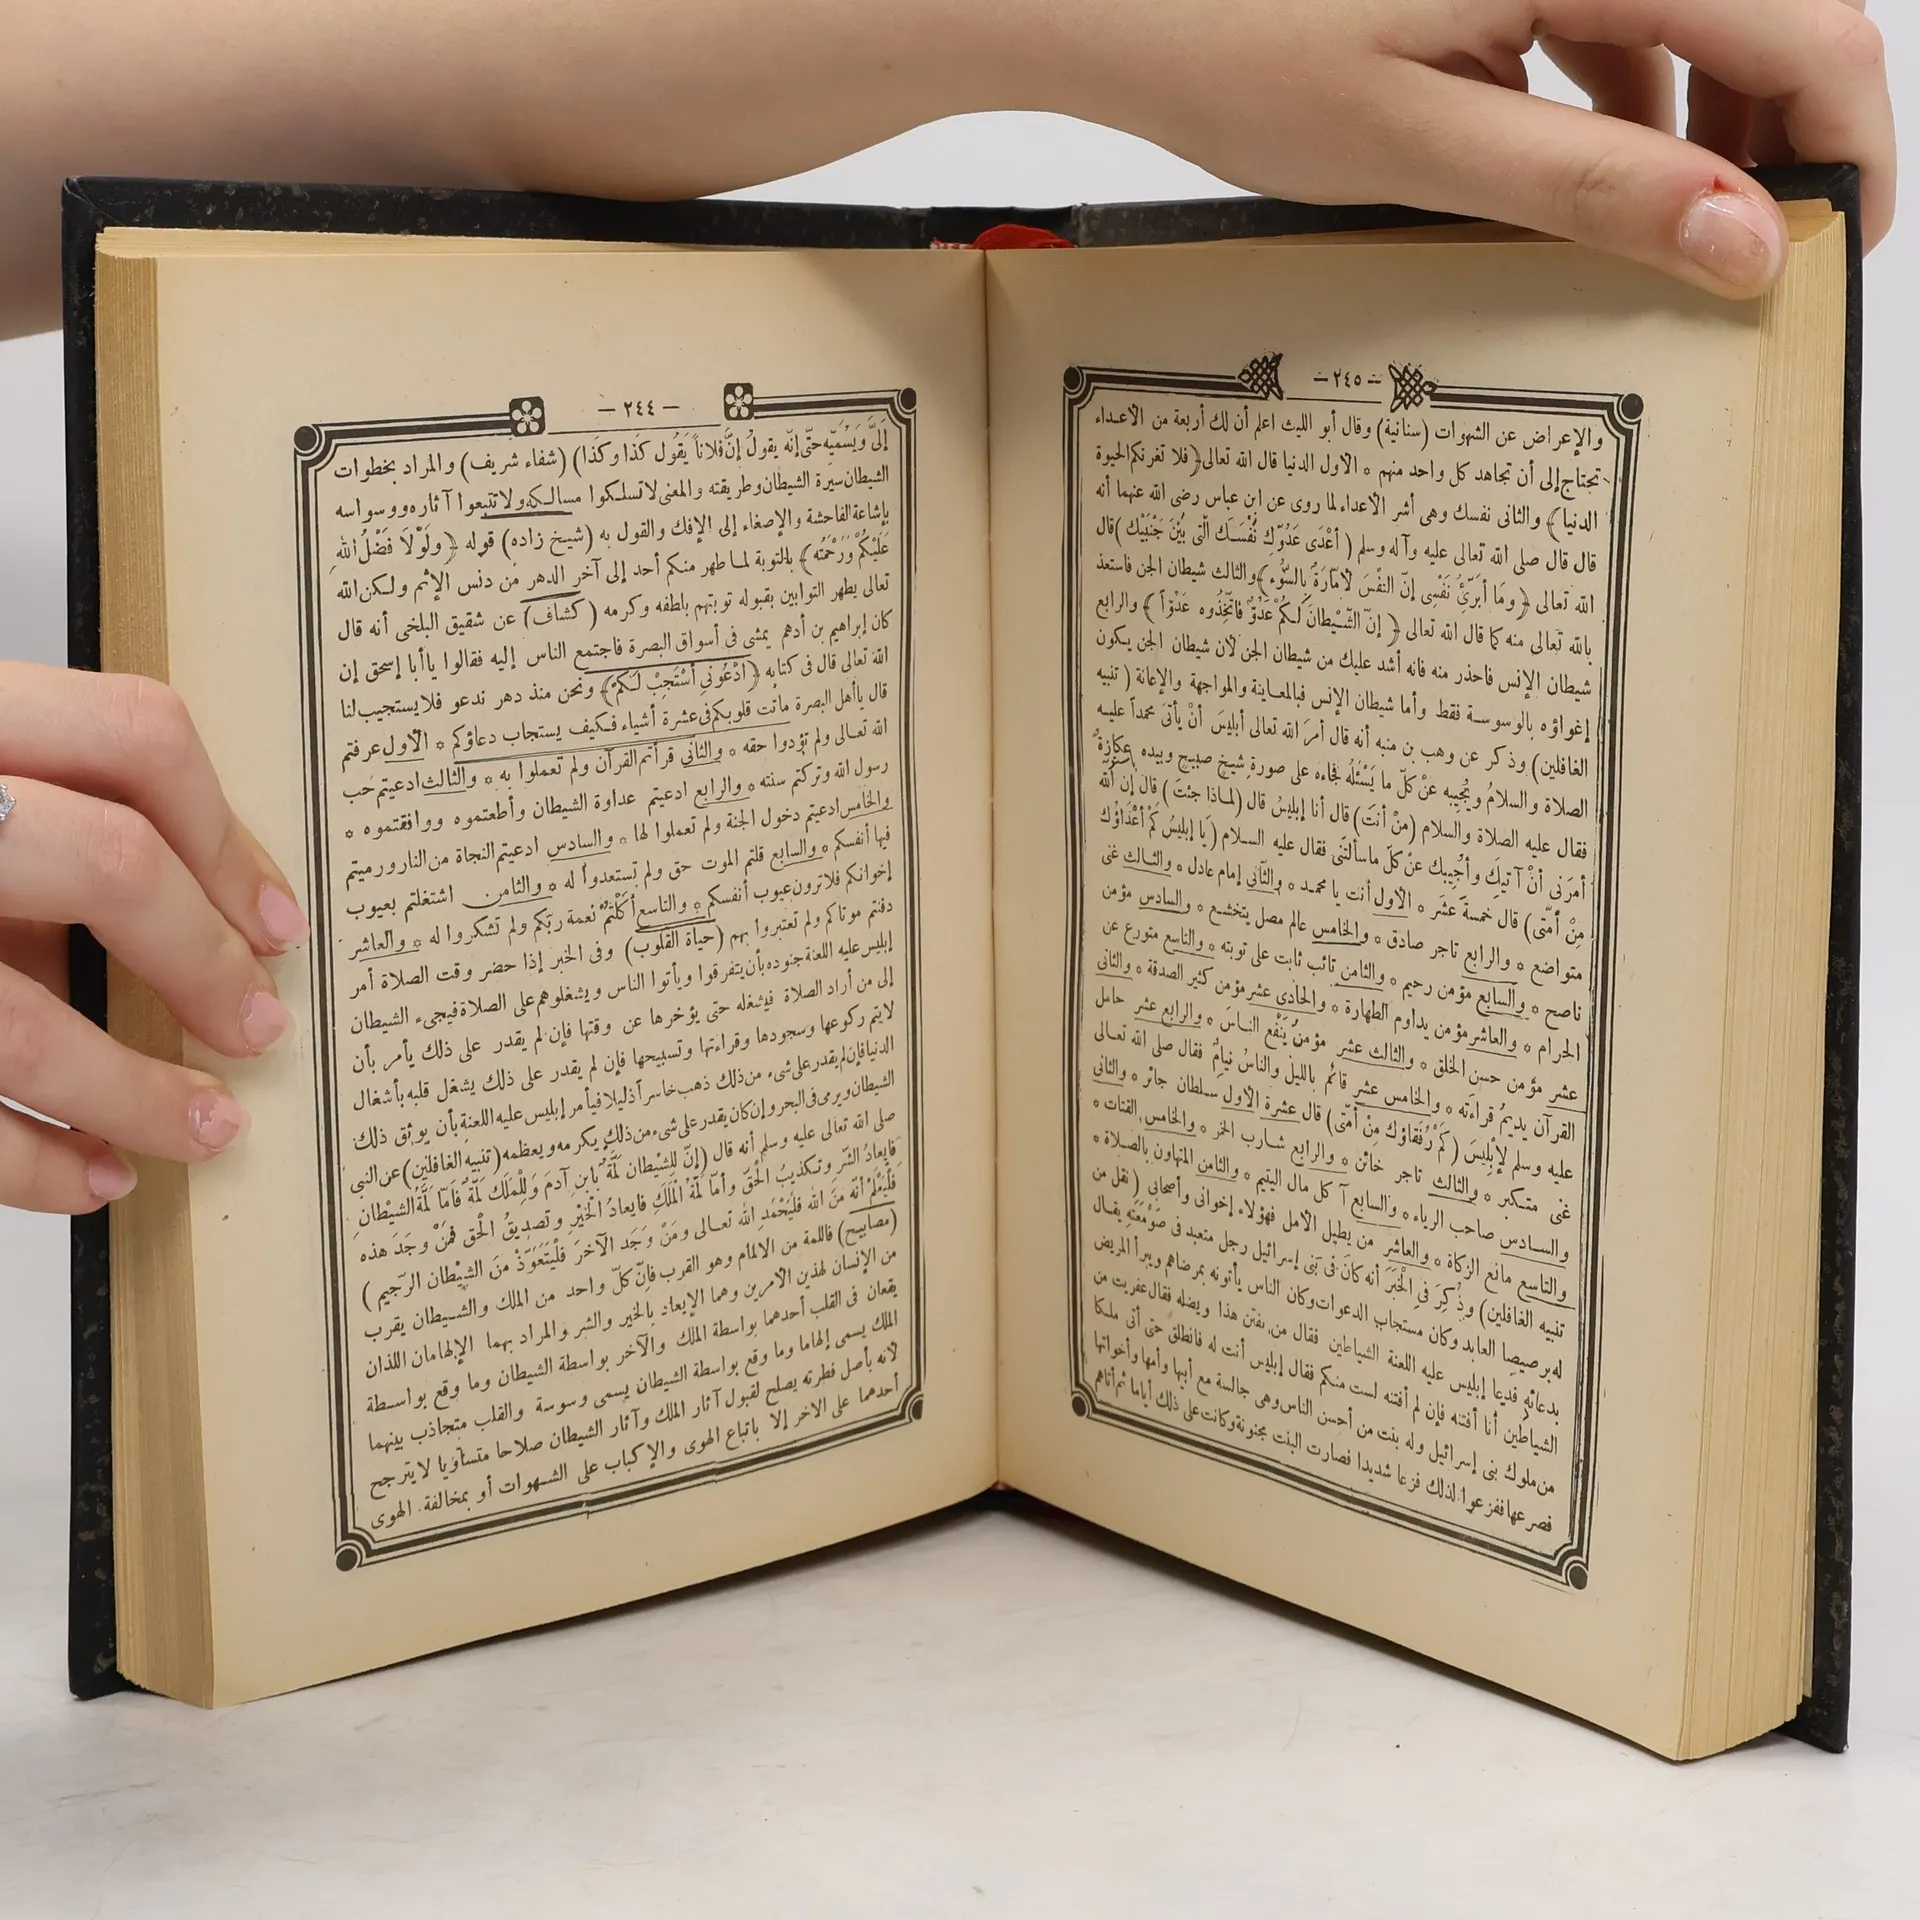 — ٢٤٤ —
إلىَّ وَيُسَمِّيهِ حتَّى إنَّه يقولُ إنَّ فُلاناً يَقُول كَذَا وكَذَا) (شفاء شريف) والمراد بخطوات
الشيطان سيرة الشيطان وطريقته والمعنى لاتسلكوا مسالكه ولاتتبعوا آثاره ووسواسه
بإشاعة الفاحشة والإصغاء إلى الإفك والقول به (شيخ زاده) قوله ﴿ولَوْلَا فَضْلُ اللهِ
عَلَيْكُمْ وَرَحْمَتُه﴾ بالتوبة لما طهر منكم أحد إلى آخر الدهر من دنس الإثم ولكن الله
تعالى يطهر التوابين بقبوله توبتهم بلطفه وكرمه (كشاف) عن شقيق البلخى أنه قال
كان إبراهيم بن أدهم يمشى فى أسواق البصرة فاجتمع الناس إليه فقالوا ياأبا إسحق إن
الله تعالى قال فى كتابه ﴿ادْعُونِى أَسْتَجِبْ لَكُمْ﴾ ونحن منذ دهر ندعو فلايستجيب لنا
قال ياأهل البصرة ماتت قلوبكم فى عشرة أشياء فكيف يستجاب دعاؤكم * الأول عرفتم
الله تعالى ولم تؤدوا حقه * والثانى قرأتم القرآن ولم تعملوا به * والثالث ادعيتم حب
رسول الله وتركتم سنته * والرابع ادعيتم عداوة الشيطان وأطعتموه ووافقتموه *
والخامس ادعيتم دخول الجنة ولم تعملوا لها * والسادس ادعيتم النجاة من النار ورميتم
فيها أنفسكم * والسابع قلتم الموت حق ولم تستعدوا له * والثامن اشتغلتم بعيوب
إخوانكم فلاترون عيوب أنفسكم * والتاسع أكلتم نعمة ربّكم ولم تشكروا له * والعاشر
دفنتم موتاكم ولم تعتبروا بهم (حياة القلوب) وفى الخبر إذا حضر وقت الصلاة أمر
إبليس عليه اللعنة جنوده بأن يتفرقوا ويأتوا الناس ويشغلوهم على الصلاة فيجىء الشيطان
إلى من أراد الصلاة فيشغله حتى يؤخرها عن وقتها فإن لم يقدر على ذلك يأمر بأن
لايتم ركوعها وسجودها وقراءتها وتسبيحها فإن لم يقدر على ذلك يشغل قلبه بأشغال
الدنيا فإن لم يقدر على شىء من ذلك ذهب خاسرا ذليلا فيأمر إبليس عليه اللعنة بأن يوثق ذلك
الشيطان ويرمى فى البحر وإن كان يقدر على شىء من ذلك يكرمه ويعظمه (تنبيه الغافلين) عن النبى
صلى الله تعالى عليه وسلم أنه قال (إنّ لِلشيْطان لمَّةً بابن آدمَ وَلِلْمَلَك لَمَّةً فَأمّا لَمَّةُ الشيْطانِ
فإيعادُ الشّرِ وتكذيبُ الْحَقّ وأمّا لَمَّةُ الْمَلَكِ فإيعادُ الْخَيْرِ وتصدِيقُ الْحق فمَنْ وجَدَ هذه
فلْيَعْلَمْ أنّه مِنَ الله فليَحْمَدِ الله تعالى ومَنْ وَجَد الآخرَ فَلْيَتَعَوّذْ مِنَ الشيْطان الرّجيم)
(مصابيح) فاللمة من الالمام وهو القرب فإنّ كلّ واحد من الملك والشيطان يقرب
من الإنسان لهذين الأمرين وهما الإيعاد بالخير والشر والمراد بهما الإلهامان اللذان
يقعان فى القلب أحدهما بواسطة الملك والآخر بواسطة الشيطان وما وقع بواسطة
الملك يسمى إلهاما وما وقع بواسطة الشيطان يسمى وسوسة والقلب متجاذب بينهما
لأنه بأصل فطرته يصلح لقبول آثار الملك وآثار الشيطان صلاحا متساويا لايترجح
أحدهما على الآخر إلا باتباع الهوى والإكباب على الشهوات أو بمخالفة الهوى
— ٢٤٥ —
والإعراض عن الشهوات (سنانية) وقال أبو الليث اعلم أن لك أربعة من الأعداء
تحتاج إلى أن تجاهد كل واحد منهم * الأول الدنيا قال الله تعالى ﴿فلا تغرنكم الحيوة
الدنيا﴾ والثانى نفسك وهى أشر الأعداء لما روى عن ابن عباس رضى الله عنهما أنه
قال قال صلى الله تعالى عليه وآله وسلم (أعْدَى عَدُوّكِ نَفْسَكَ الّتى بَيْنَ جَنْبَيْك) قال
الله تعالى ﴿ومَا أبَرّئُ نَفْسِى إنّ النفْسَ لأمّارَةٌ بالسُّوْء﴾ والثالث شيطان الجن فاستعذ
بالله تعالى منه كما قال الله تعالى ﴿إنّ الشّيْطانَ لَكُمْ عَدُوٌّ فاتّخِذُوه عَدُوّاً﴾ والرابع
شيطان الإنس فاحذر منه فانه أشد عليك من شيطان الجن لأن شيطان الجن يكون
إغواؤه بالوسوسة فقط وأما شيطان الإنس فبالمعاينة والمواجهة والإعانة (تنبيه
الغافلين) وذكر عن وهب بن منبه أنه قال أمرَ الله تعالى أبليسَ أنْ يأتىَ محمداً عليه
الصلاة والسلامُ ويُجيبه عنْ كلّ ما يَسْئَلُه فجاءه على صورةِ شيخٍ صبيحٍ وبيده عكازةٌ
فقال عليه الصلاة والسلام (منْ أنتَ) قال أنا إبليسُ قال (لماذا جئتَ) قال إن الله
أمرَنى أنْ آتيَكَ وأجيبك عنْ كلّ ماسألتَنى فقال عليه السلام (يا إبليسُ كَمْ أعْدَاؤُك
مِنْ أمّتى) قال خمسةَ عشَر * الأول أنت يا محمد * والثانى إمام عادل * والثالث غنى
متواضع * والرابع تاجر صادق * والخامس عالم مصل يتخشع * والسادس مؤمن
ناصح * والسابع مؤمن رحيم * والثامن تائب ثابت على توبته * والتاسع متورع عن
الحرام * والعاشر مؤمن يداوم الطهارة * والحادى عشر مؤمن كثير الصدقة * والثانى
عشر مؤمن حسن الخلق * والثالث عشر مؤمنٌ يَنْفع الناسَ * والرابع عشر حامل
القرآن يديمُ قراءَته * والخامس عشر قائم بالليل والناسُ نيامٌ فقال صلى الله تعالى
عليه وسلم لإبْلِيسَ (كَمْ رُفَقاؤك مِنْ أمّتى) قال عشرة الأول سلطان جائر * والثانى
غنى متكبر * والثالث تاجر خائن * والرابع شارب الخمر * والخامس القتات *
والسادس صاحب الرياء * والسابع آ كل مال اليتيم * والثامن المتهاون بالصلاة *
والتاسع مانع الزكاة * والعاشر من يطيل الأمل فهؤلاء إخوانى وأصحابى (نقل من
تنبيه الغافلين) وذُكِرَ فى الْخَبَرَ أنه كانَ فى بَنى إسرائيل رجل متعبد فى صَوْمَعَتِه يقال
له برصيصا العابد وكان مستجاب الدعوات وكان الناس يأتونه بمرضاهم ويبرأ المريض
بدعائه فدعا إبليس عليه اللعنة الشياطين فقال من يفتن هذا ويضله فقال عفريت من
الشياطين أنا أفتنه فإن لم أفتنه لست منكم فقال إبليس أنت له فانطلق حتى أتى ملكا
من ملوك بنى إسرائيل وله بنت من أحسن الناس وهى جالسة مع أبيها وأمها وأخواتها
فصرعها ففزعوا لذلك فزعا شديدا فصارت البنت مجنونة وكانت على ذلك أياما ثم أتاهم